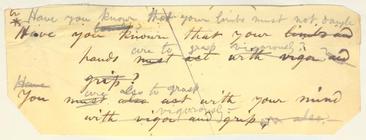 * Have you know that your limbs must not dangle
Have you known that your limbs and
are to grasp vigorously?
hands must act with vigor and
Have
grip?
are also to grasp
You must also act with your mind
vigorously?
with vigor and grip, so also.